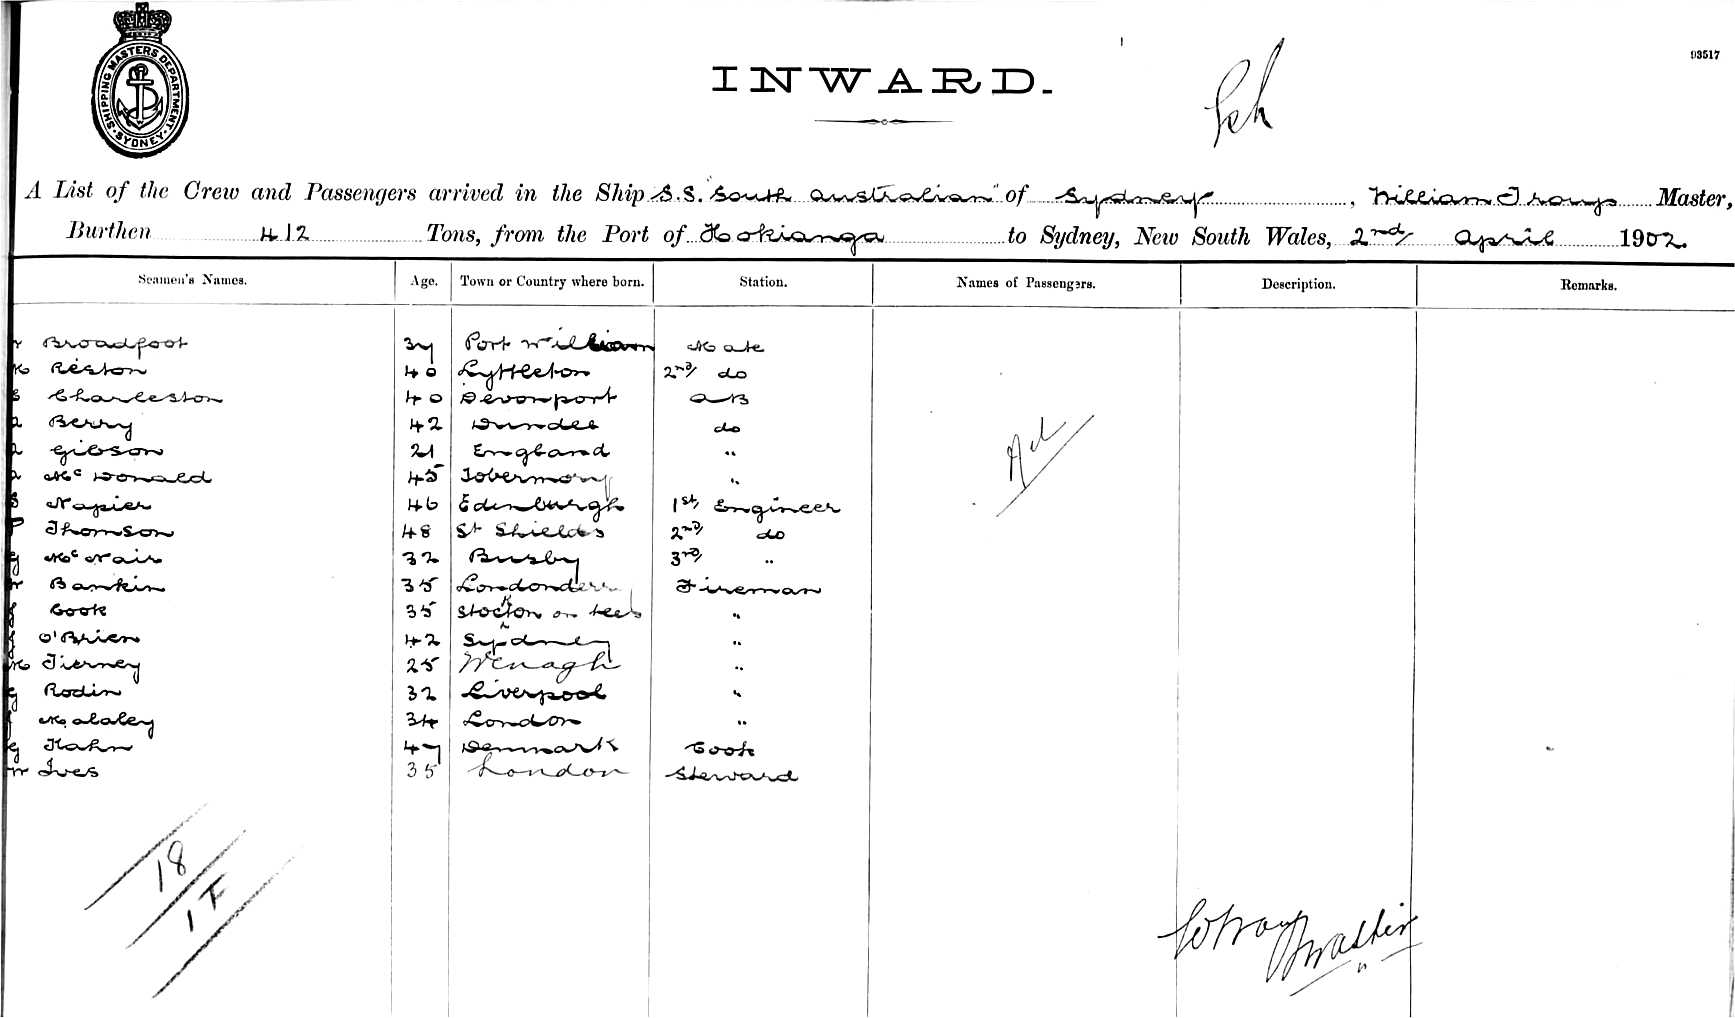 SHIPPING MASTERS DEPARTMENT · SYDNEY ·
93517
INWARD.
A List of the Crew and Passengers arrived in the Ship S.S. "South Australian" of Sydney, William Master,
Burthen 412 Tons, from the Port of Hokianga to Sydney, New South Wales, 2nd April 1902.
Seamen's Names. Age. Town or Country where born. Station. Names of Passengers. Description. Remarks.
Broadfoot 37 Port William Mate
M Reston 40 Lyttleton 2nd do
Charleston 40 Devonport AB
Berry 42 Dundee do
Gibson 21 England "
McDonald 45 Tobermory "
Napier 46 Edinburgh 1st Engineer
Thomson 48 St Shields 2nd do
G McNair 32 Busby 3rd "
Bankin 35 Londonderry Fireman
Cook 35 Stockton on Tees "
O'Brien 42 Sydney "
M Tierney 25 "
G Rodin 32 Liverpool "
Malaley 34 London "
G Hahn 47 Denmark Cook
W Ives 35 London Steward
Nil
18
1F
Master